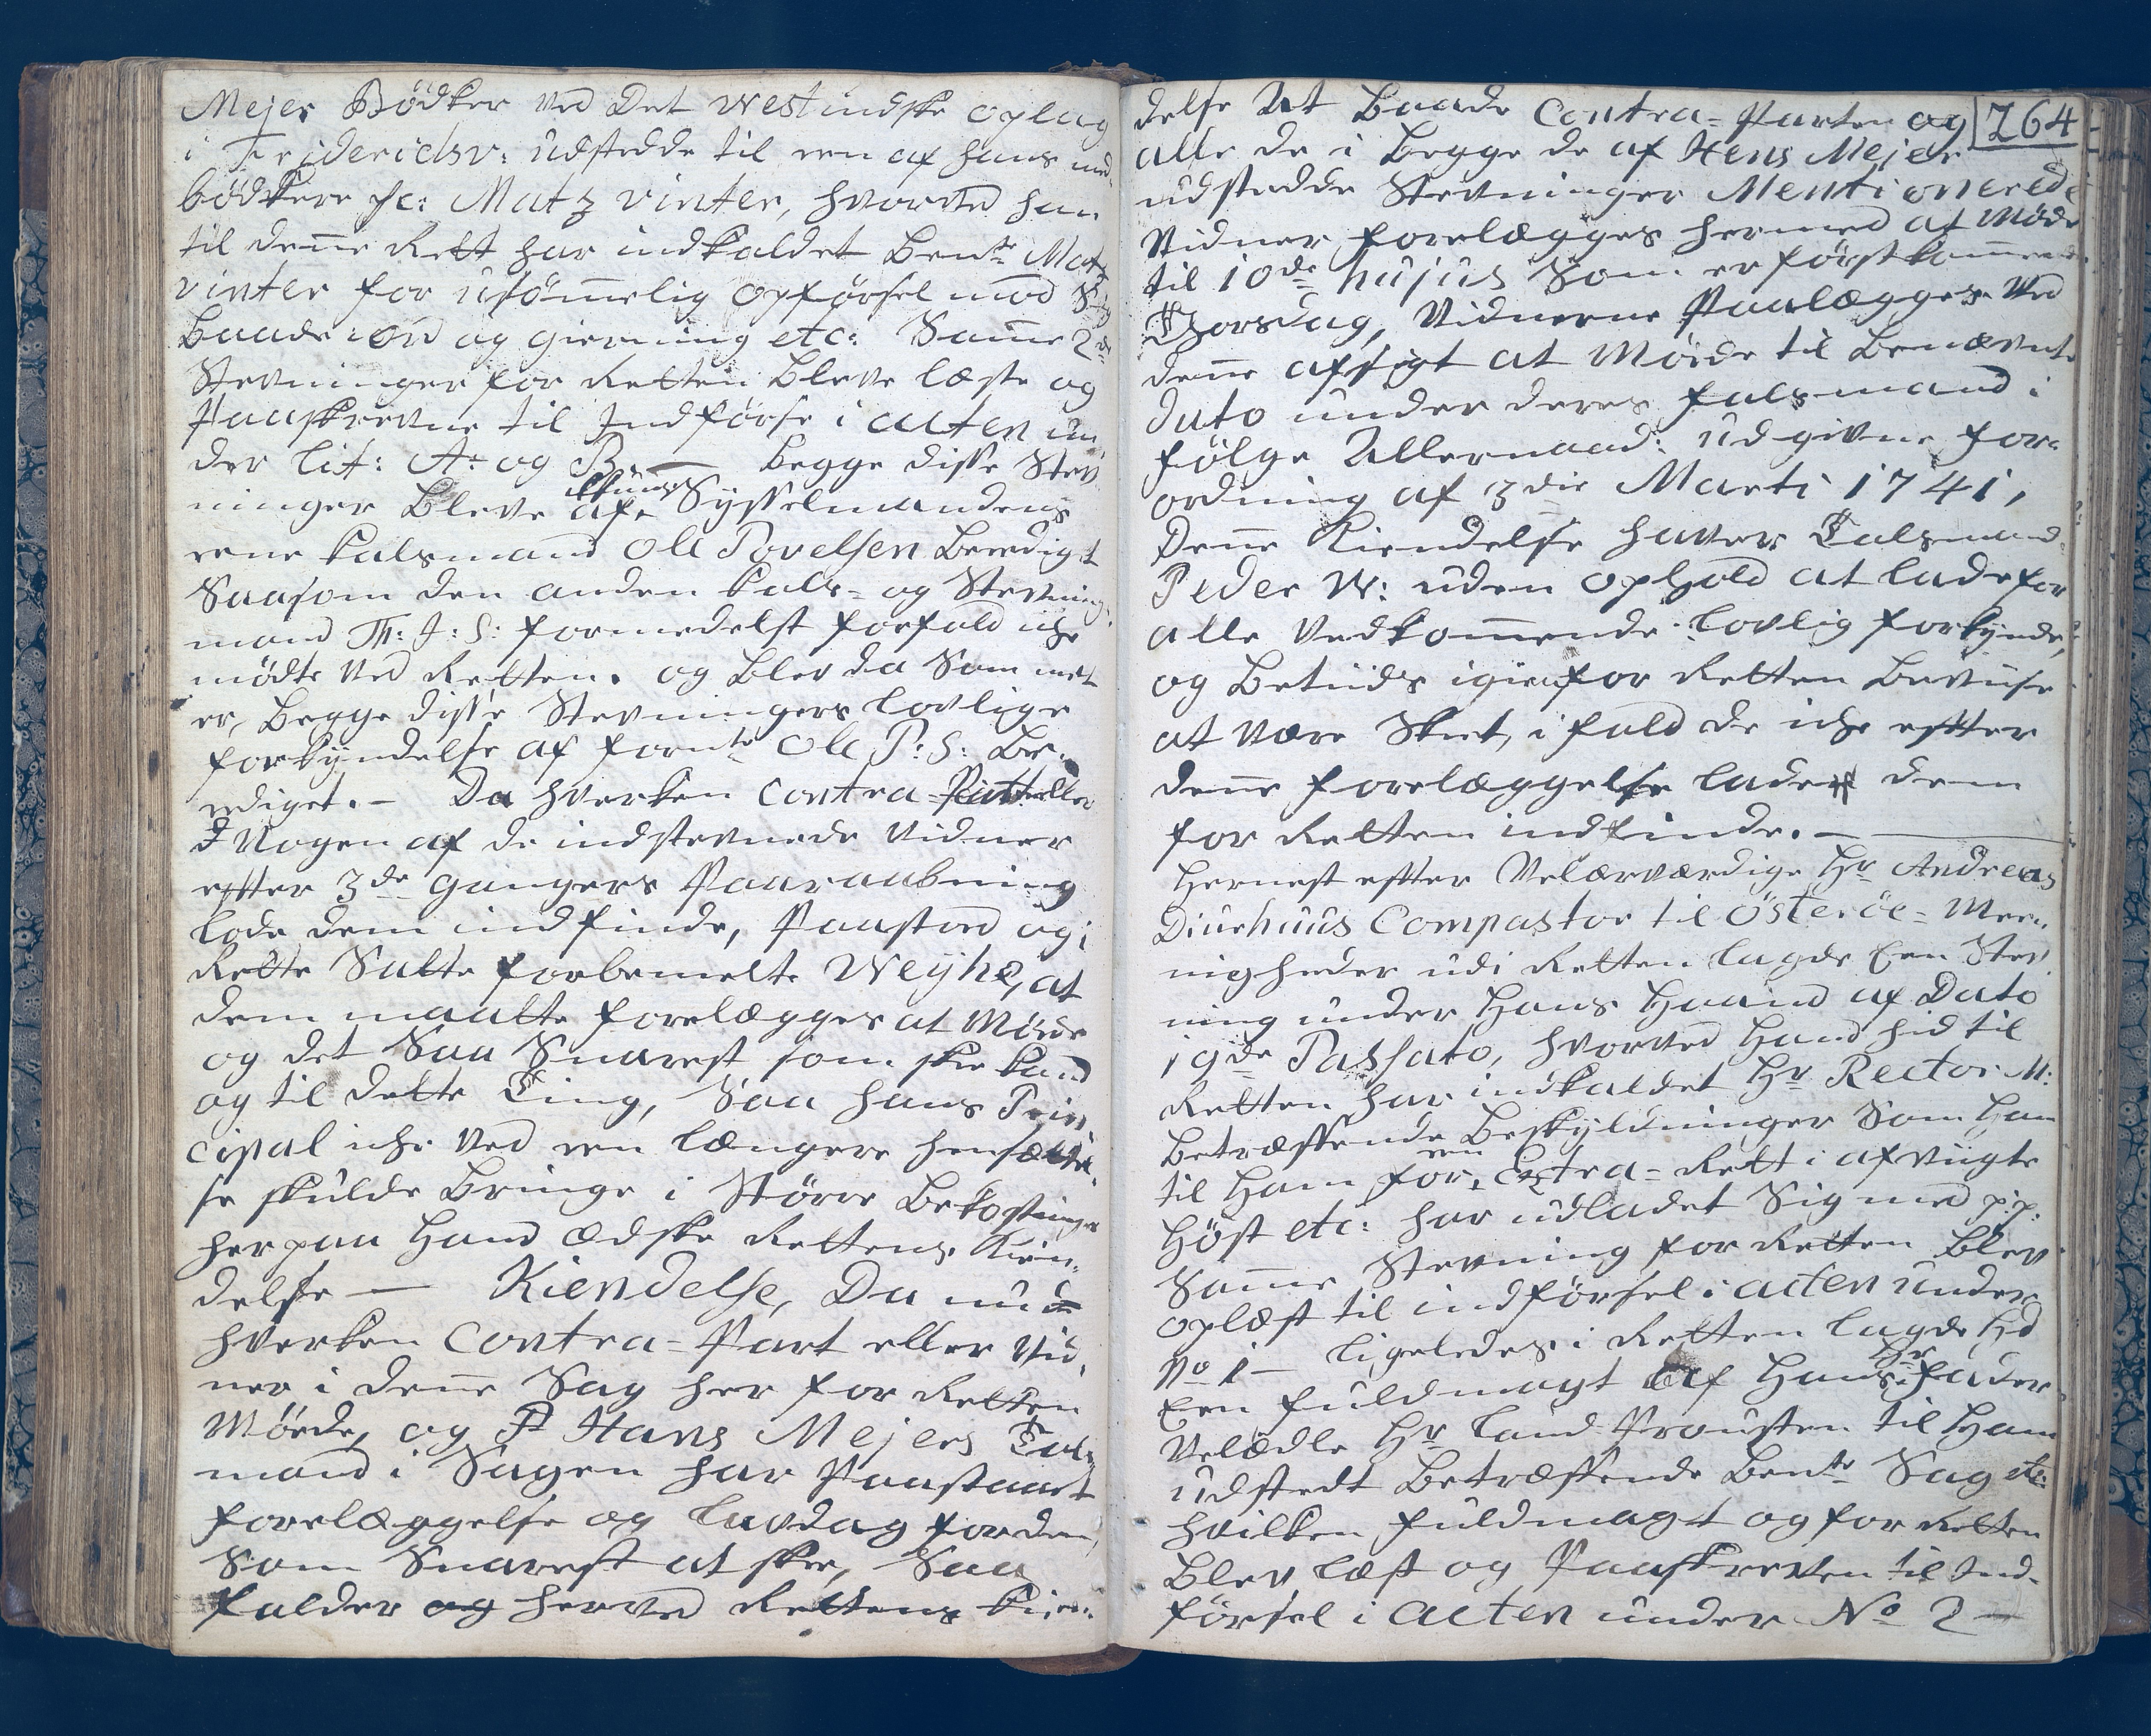 Mejer Bödker ved Det westindske oplag
i Friderichsv: udstedde til een af hans med
bödkere Sc: Matz vinter, hvorved han
til denne Rett har indkaldet Bente Matz
vinter for usömmelig opførsel mod Sig
baade i ord og gierning etc: Samme 2de
Stevninger for Retten bleve læste og
Paaskrevne til Indførse i acten un
der lit: A: og B. — Begge disse Stev
ninger bleve af Sysselmandens
eene Kalsmand Ole Povelsen beediget
Saasom den anden Kals- og Stevnings
mand Th: J: S: formedelst forfald iche
mödte ved Retten. og blev da Som met
er, begge disse Stevningers lovlige
forkyndelse af fornte Ole P: S: be-
ediget. — Da hverken Contra-Part eller
Nogen af de indstevnede Vidner
efter 3de ganges Paaraabning
lode dem indfinde, Paastod og i
Rette Satte forbemelte Weyhe, at
dem maatte forelægges at Møde
og det Saa Snarest som skee kand
og til dette Ting, Saa hans Prin
cipal iche ved een længere hensættel
se skulde bringe i Større bekostninger
her paa Hand Ædske Rettens Kien-
delse — Kiendelse, Da nu
hverken Contra-Part eller Vid-
ner i denne Sag her for Retten
Møde, og Hans Mejers Tals
mand i Sagen har Paastaaet
forelæggelse og Lavdag for dem,
Som Snarest at skee, Saa
falder og herved Rettens Kien-
264
delse At baade Contra-Parten og
alle de i begge de af Hens Mejer
udstedde Stevninger Mentionerede
Vidner forelægges hermed at Møde
til 10de hujus Som er førstkommende
Thorsdag, Vidnerne Paalægges ved
denne afsigt at Møde til benævnte
Dato under deres falsmaal i
fölge Allernaad: udgivne for-
ordning af 3die Marti 1741,
Denne Kiendelse haver Talsmand
Peder W: uden ophold at lade for
alle vedkommende lovlig forkynde,
og betids igien for Retten bevise
at være Skeet, i fald de iche effter
denne forelæggelse lader dem
for Retten indfinde. —
Hernest effter Velærværdige Hr Andreas
Diurhuus Compastor til Österöe-Mee-
nigheder udi Retten lagde Een Stev
ning under Hans Haand af Dato
19de Passato, hvorved Hand hid til
Retten har indkaldet Hr Rector M:
betræffende Beskyldninger Som Han
til Ham for een Extra-Rett i afvigte
Höst etc: har udladet Sig med p:p:
Samme Stevning for Retten blev
oplæst til indförsel i acten under
No 1 — Ligeledes i Retten lagde Hd
Een fuldmagt af Hans Hr Fader
Velædle Hr Land-Prousten til Ham
udstedt betræffende bente Sag etc:
hvilken fuldmagt og for Retten
blev læst og Paaskreven til Ind-
försel i acten under No 2 —